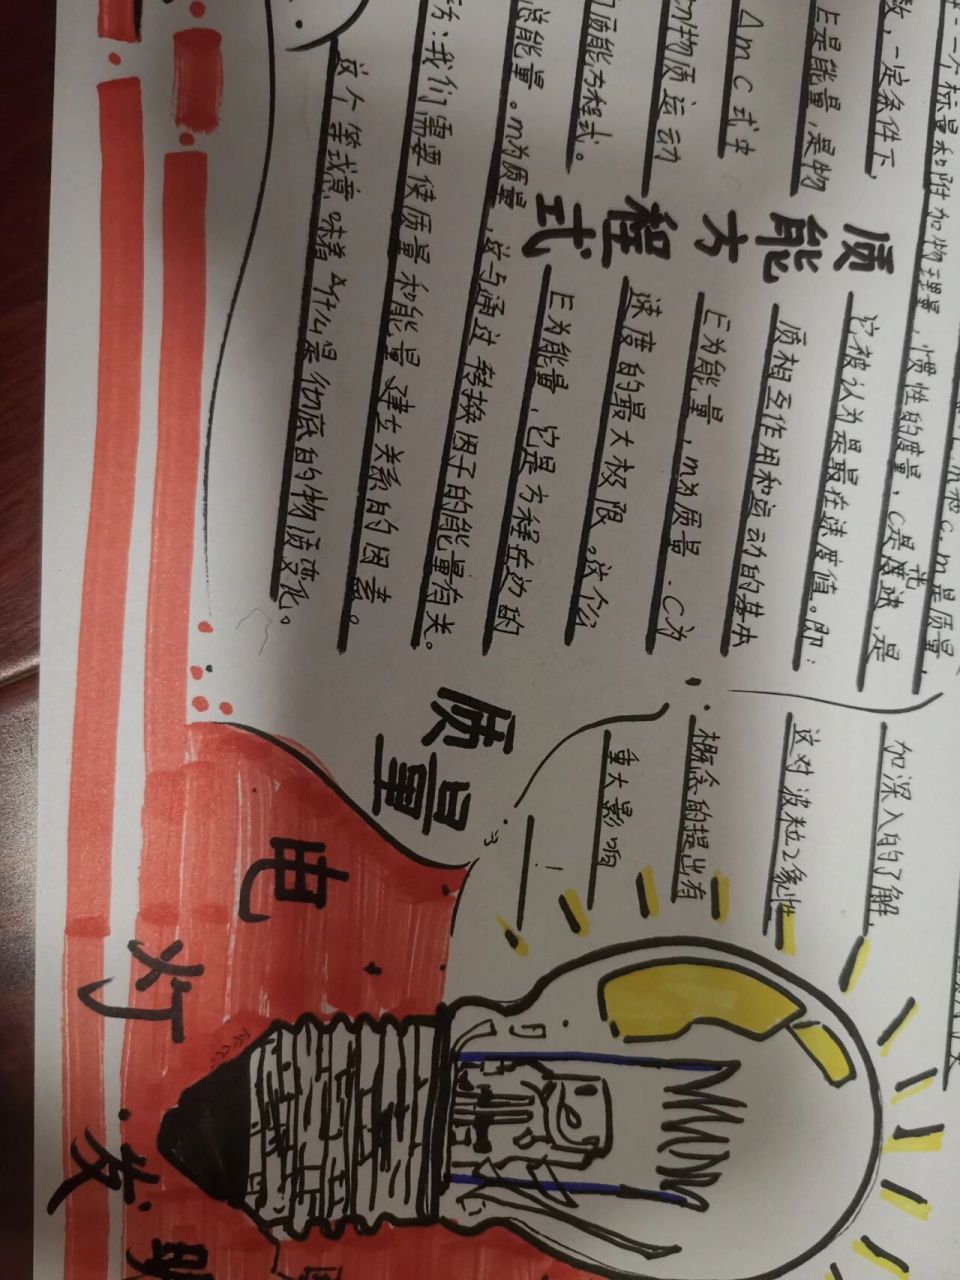 m和c.m是质量,
一个标量和附加物理量,惯性的度量,c是光速,是
数,一定条件下,
它被认为是最在速度值。即:
E是能量,是物
质相互作用和运动的基本
Δmc式中
E为能量,m为质量.c为
物质运动
速度的最大极限。这个公
质能方程式。
E为能量,它是方程左边的
总能量。m为质量,这与通过转换因子的能量有关。
:我们需要使质量和能量建立关系的因素。
这个等式意味着什么是彻底的物质变化。
质能方程式
加深入的了解,
这对波粒2象性
概念的提出有
重大影响
质量
电灯发明